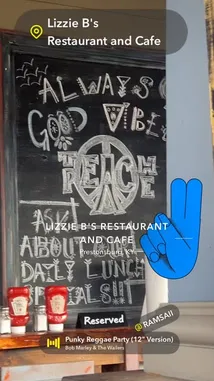 Lizzie B's
Restaurant and Cafe
ALWAYS
GOOD VIBES
TEACH
ME
ASK
ABOUT OUR
DAILY LUNCH
SPECIALS!!
LIZZIE B'S RESTAURANT
AND CAFE
Prestonsburg, KY
@RAMSAII
Reserved
Punky Reggae Party (12" Version)
Bob Marley & The Wailers